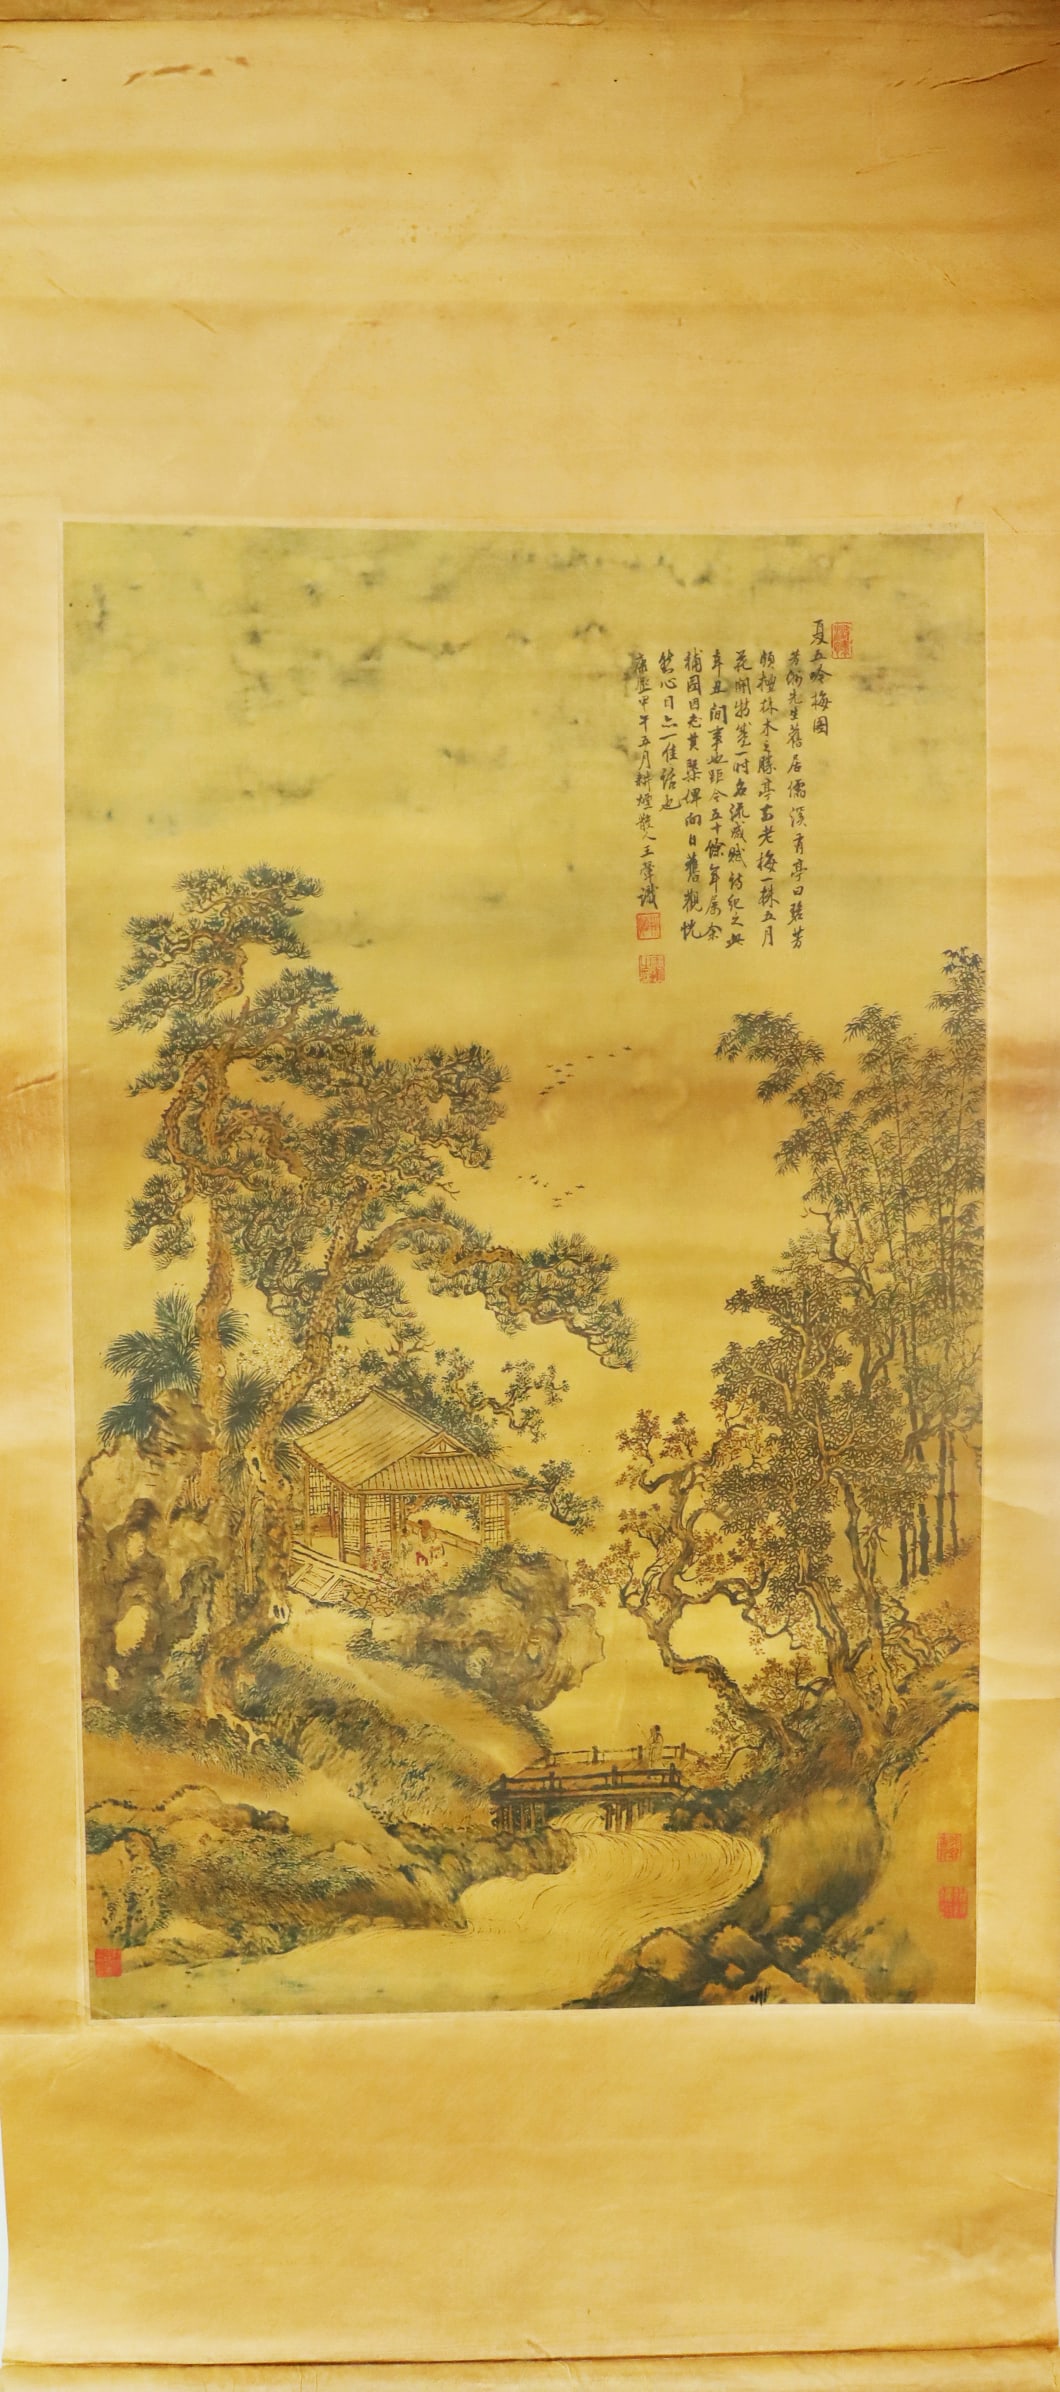 夏五吟梅图
芳洲先生舊居儒溪有亭曰碧芳
頗擅林木之勝亭前老梅一株五月
花開特盛一时名流咸賦詩纪之此
辛丑间事也距今五十餘年屬余
補图因老其槩俾向日舊觀恍
然心目亦一佳话也
康熙甲午五月耕煙散人王翬識